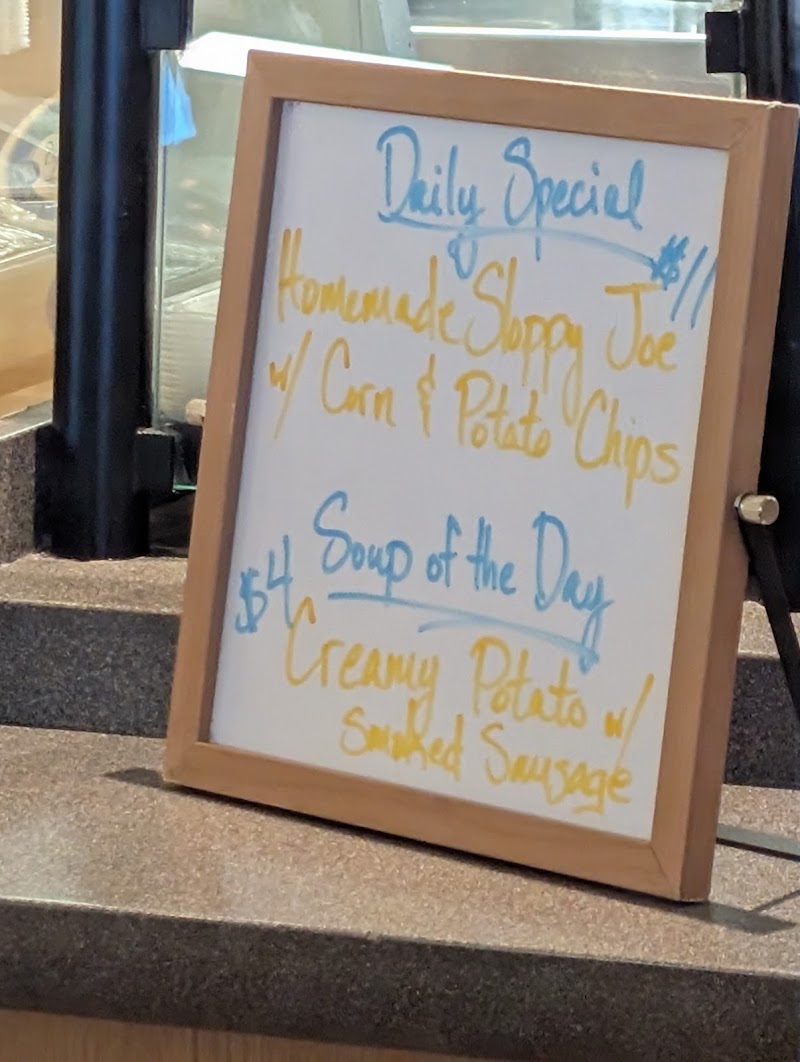 Daily Special
$11
Homemade Sloppy Joe
w/ Corn & Potato Chips
Soup of the Day
$4
Creamy Potato w/
Smoked Sausage